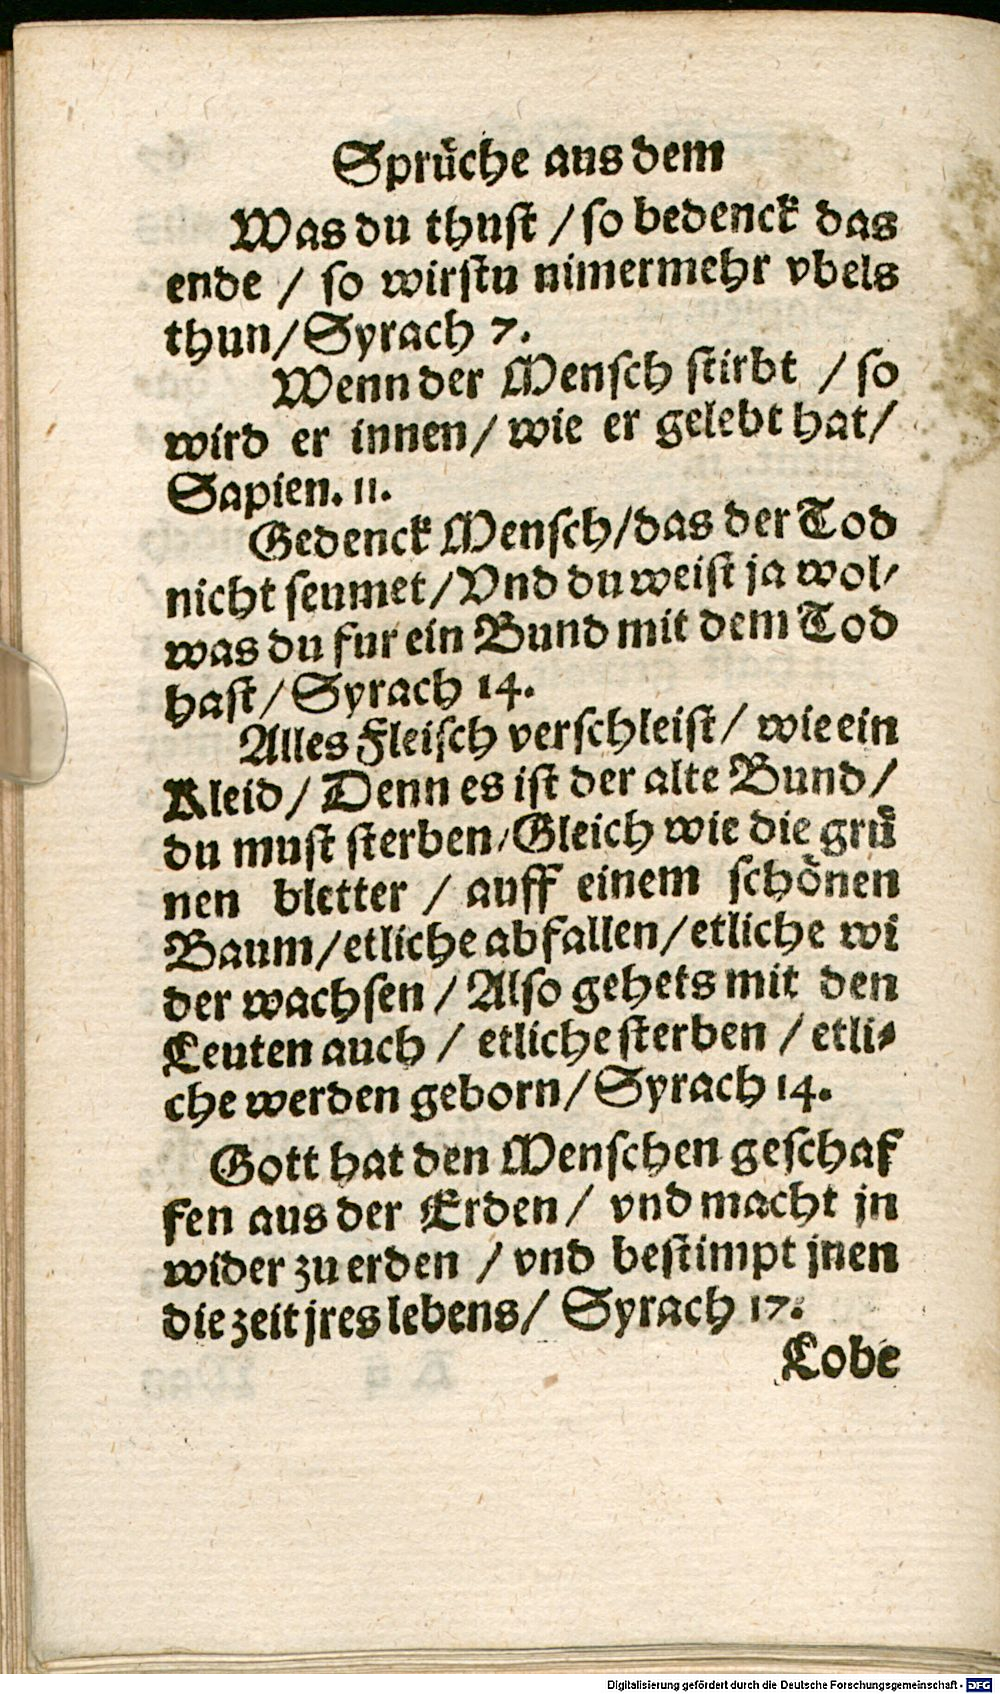 Sprüche aus dem
Was du thust / so bedenck das
ende / so wirstu nimermehr vbels
thun / Syrach 7.
Wenn der Mensch stirbt / so
wird er innen / wie er gelebt hat /
Sapien. 11.
Gedenck Mensch / das der Tod
nicht seumet / Vnd du weist ja wol /
was du fur ein Bund mit dem Tod
hast / Syrach 14.
Alles Fleisch verschleist / wie ein
Kleid / Denn es ist der alte Bund /
du must sterben / Gleich wie die grü
nen bletter / auff einem schönen
Baum / etliche abfallen / etliche wi
der wachsen / Also gehets mit den
Leuten auch / etliche sterben / etli-
che werden geborn / Syrach 14.
Gott hat den Menschen geschaf
fen aus der Erden / vnd macht jn
wider zu erden / vnd bestimpt jnen
die zeit jres lebens / Syrach 17.
Lobe
Digitalisierung gefördert durch die Deutsche Forschungsgemeinschaft - DFG